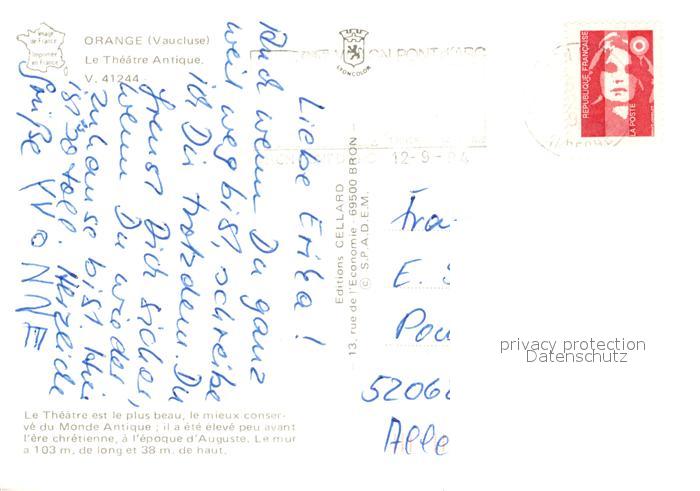 Image
de France
Imprimée
en France
ORANGE (Vaucluse)
Le Théâtre Antique.
V. 41244
LYONCOLOR
PONT D'ARC
12-9-
REPUBLIQUE FRANÇAISE
LA POSTE
Liebe Erika!
Auch wenn Du ganz
weit weg bist, schreibe
ich Dir trotzdem. Du
freust Dich sicher,
wenn Du wieder
zuhause bist. Hier
ist's toll. Herzliche
Grüße YVONNE
Editions CELLARD
13, rue de l'Economie - 69500 BRON -
© S.P.A.D.E.M.
Fra
E. S
Pou
52062
Alle
privacy protection
Datenschutz
Le Théâtre est le plus beau, le mieux conser-
vé du Monde Antique ; il a été élevé peu avant
l'ère chrétienne, à l'époque d'Auguste. Le mur
a 103 m. de long et 38 m. de haut.